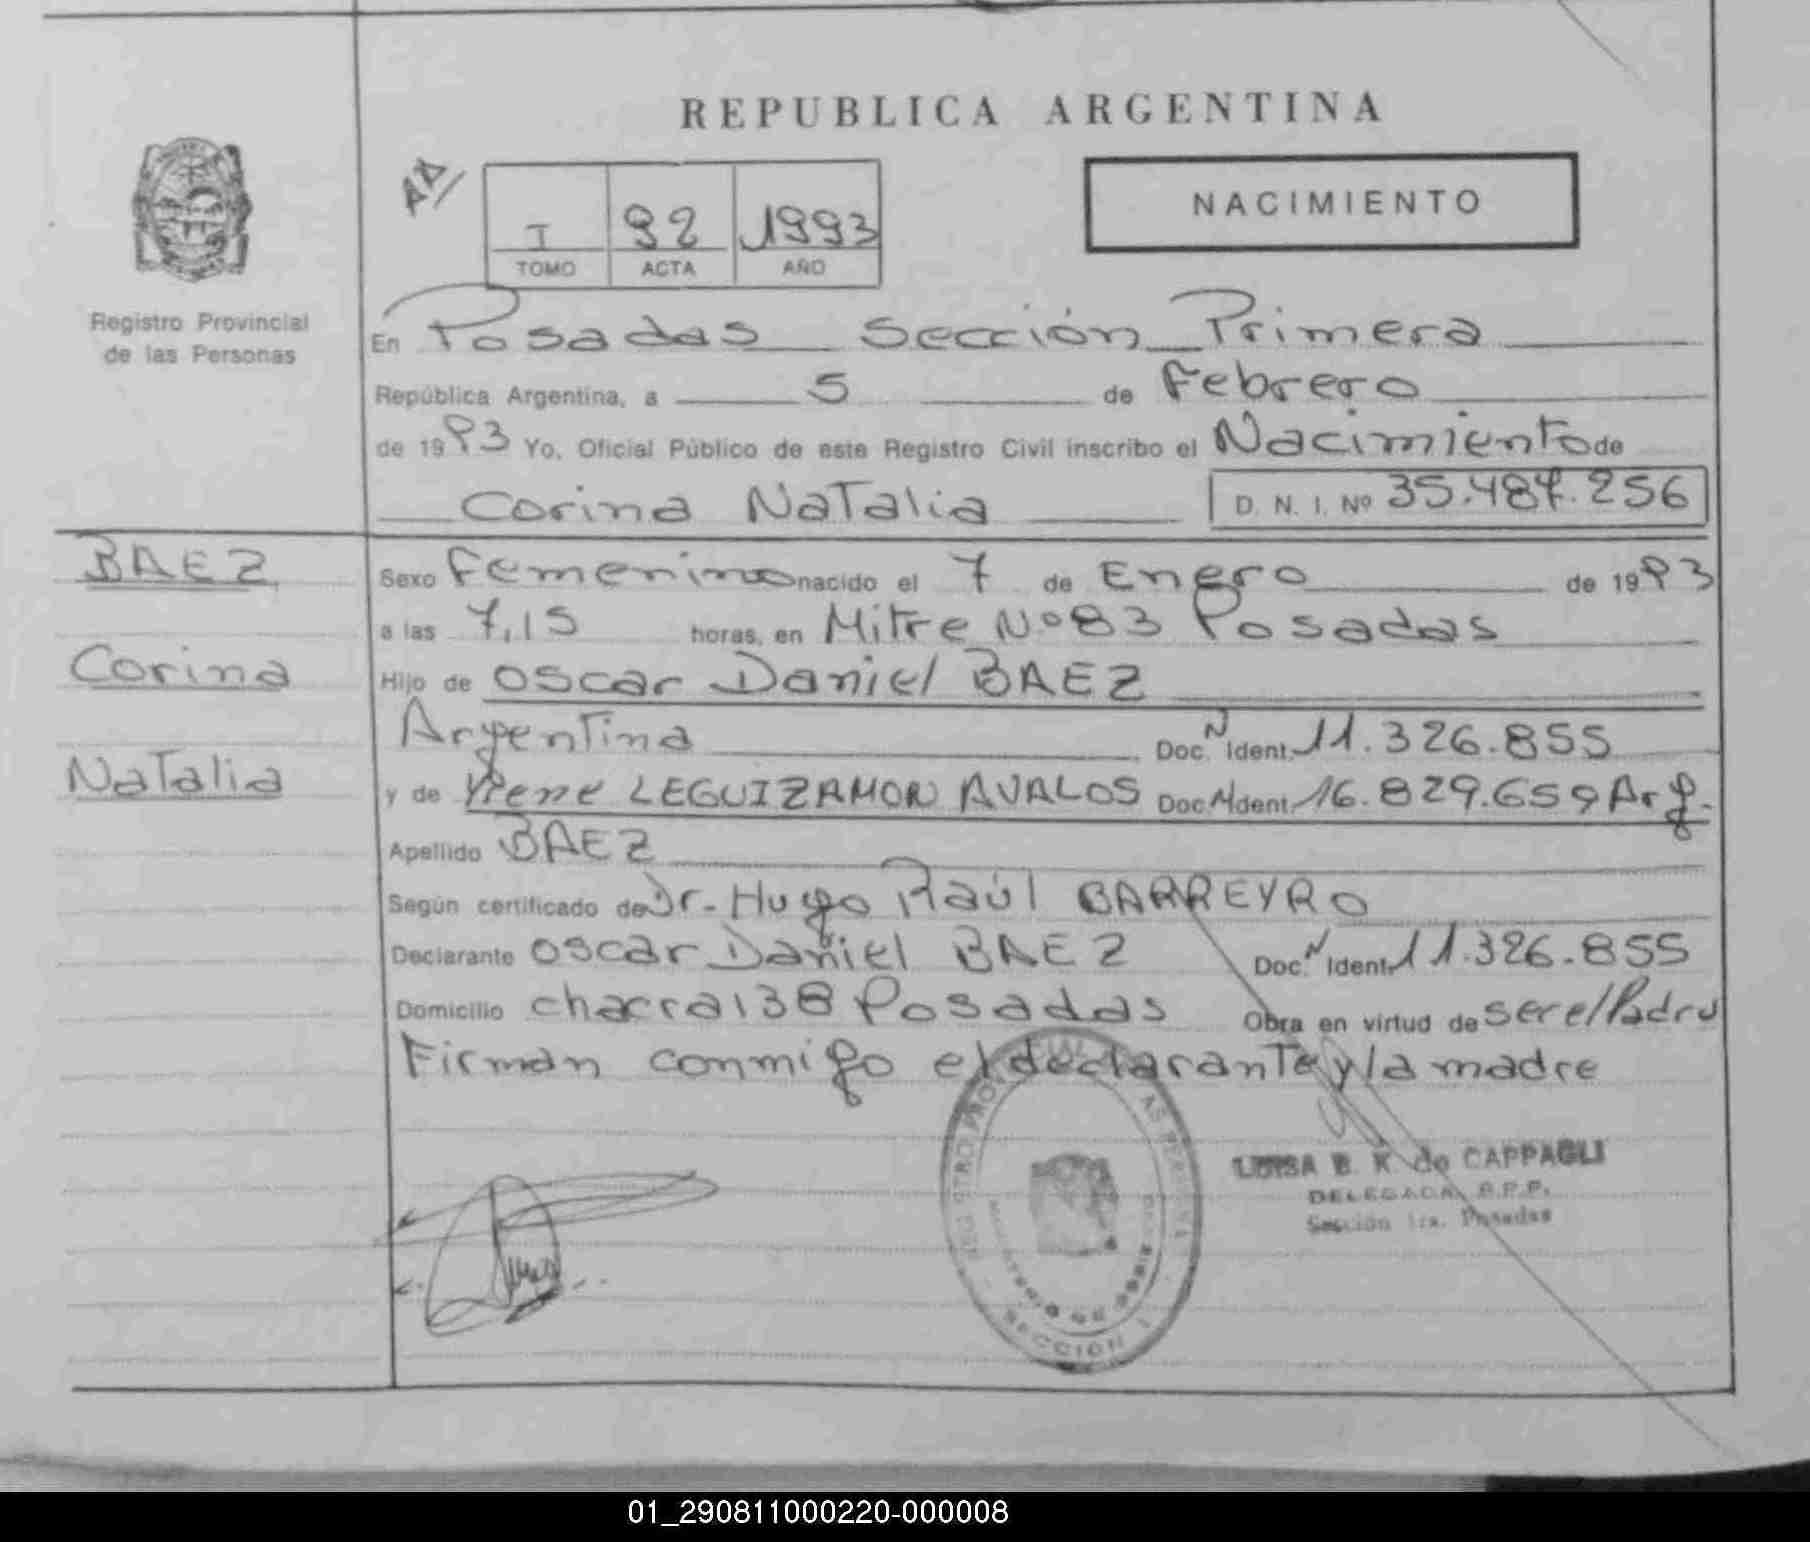 REPUBLICA ARGENTINA
NACIMIENTO
I 92 1993
TOMO ACTA AÑO
Registro Provincial
de las Personas
En Posadas Sección Primera
República Argentina, a 5 de Febrero
de 1993 Yo, Oficial Público de este Registro Civil inscribo el Nacimiento de
Corina Natalia D. N. I. Nº 35.487.256
BAEZ
Corina
Natalia
Sexo Femenino nacido el 7 de Enero de 1993
a las 7,15 horas, en Mitre Nº 83 Posadas
Hijo de Oscar Daniel BAEZ
Argentina Doc. N Ident. 11.326.855
y de Irene LEGUIZAMON AVALOS Doc. N Ident. 16.829.659 Arg.
Apellido BAEZ
Según certificado de Dr. Hugo Raúl BARREYRO
Declarante Oscar Daniel BAEZ Doc. N Ident. 11.326.855
Domicilio chacra 138 Posadas Obra en virtud de ser el Padre
Firman conmigo el declarante y la madre
LUISA B. K. de CAPPAGLI
DELEGADA R.P.P.
Sección 1ra. Posadas
SECCIÓN 1
01_290811000220-000008